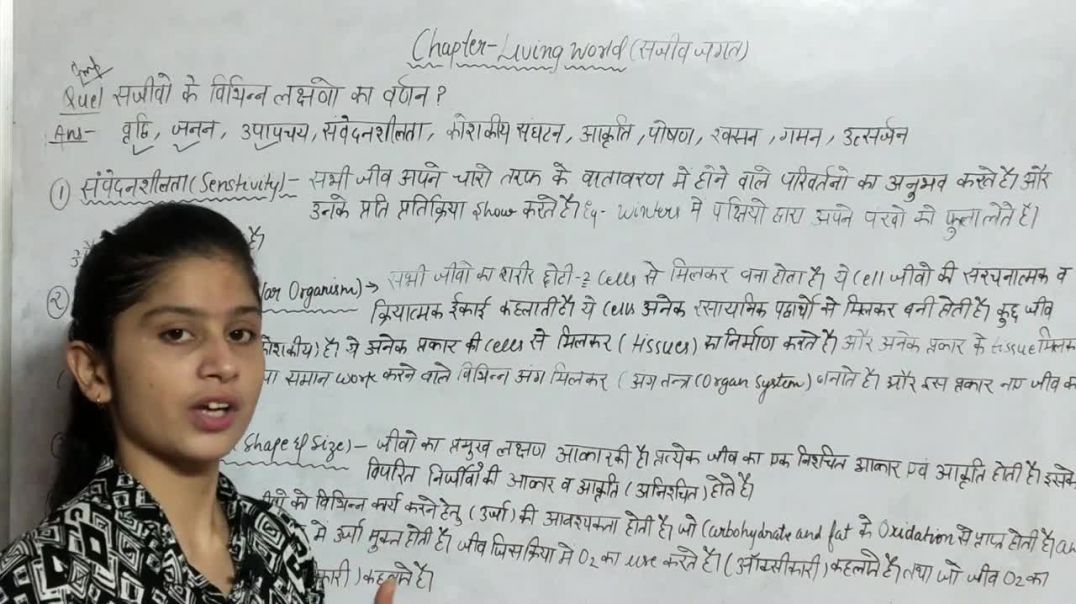 Chapter-Living World (सजीव जगत)
Imp
Que1 सजीवो के विभिन्न लक्षणो का वर्णन ?
Ans- वृद्धि, जनन, उपापचय, संवेदनशीलता, कोशकीय संघटन, आकृति, पोषण, श्वसन, गमन, उत्सर्जन
① संवेदनशीलता (Senstivity) - सभी जीव अपने चारो तरफ के वातावरण मे होने वाले परिवर्तनो का अनुभव करते है। और
उनके प्रति प्रतिक्रिया show करते है। Eg- winters मे पक्षियो द्वारा अपने पंखो को फुला लेते है।
है।
② Organism) → सभी जीवो का शरीर छोटी-2 cells से मिलकर बना होता है। ये cell जीवो की संरचनात्मक व
क्रियात्मक ईकाई कहलाती है। ये cells अनेक रसायनिक पदार्थो से मिलकर बनी होती है। कुछ जीव
है। ये अनेक प्रकार की cells से मिलकर (tissues) का निर्माण करते है। और अनेक प्रकार के tissue मिलकर
समान work करने वाले विभिन्न अंग मिलकर (अंग तन्त्र (Organ System) बनाते है। और इस प्रकार नए जीव का
Shape & Size) - जीवो का प्रमुख लक्षण आकार की है। प्रत्येक जीव का एक निश्चित आकार एवं आकृति होती है। इसके
विपरित निर्जीवो की आकार व आकृति (अनिश्चित) होते है।
को विभिन्न कार्य करने हेतु (उर्जा) की आवश्यकता होती है। जो Carbohydrate and fat के Oxidation से प्राप्त होती है।
मे उर्जा मुक्त होती है। जीव जिस क्रिया मे O2 का use करते है। (ऑक्सीकारी) कहलाते है। तथा जो जीव O2 का
कहलाते है।